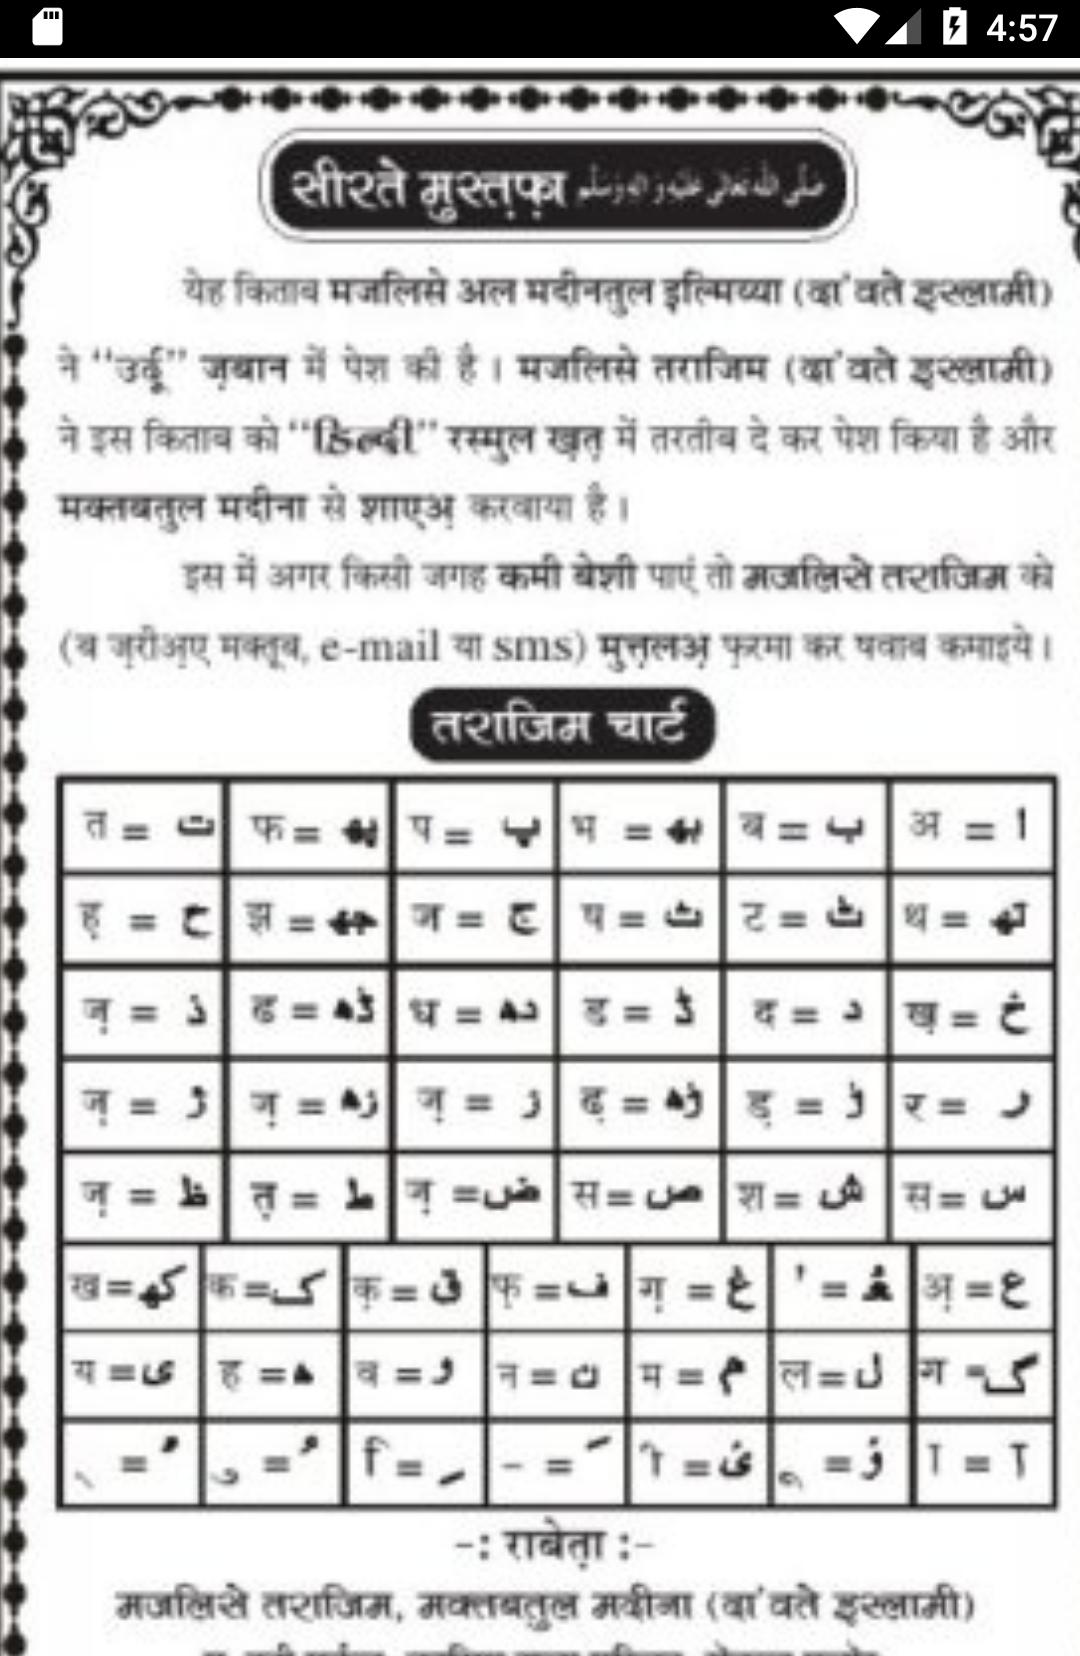 4:57
सीरते मुस्त़फ़ा صَلَّى اللهُ تَعَالٰى عَلَيْهِ وَاٰلِهٖ وَسَلَّم
येह किताब मजलिसे अल मदीनतुल इल्मिय्या (दा'वते इस्लामी)
ने “उर्दू” ज़बान में पेश की है । मजलिसे तराजिम (दा'वते इस्लामी)
ने इस किताब को “हिन्दी” रस्मुल ख़त़ में तरतीब दे कर पेश किया है और
मक्तबतुल मदीना से शाएअ़ करवाया है ।
इस में अगर किसी जगह कमी बेशी पाएं तो मजलिसे तराजिम को
(ब ज़रीअ़ए मक्तूब, e-mail या sms) मुत्त़लअ़ फ़रमा कर षवाब कमाइये ।
तराजिम चार्ट
त = ت फ = پھ प = پ भ = بھ ब = ب अ = ا
ह़ = ح झ = جھ ज = ج ष = ث ट = ٹ थ = تھ
ज़ = ذ ढ = ڈھ ध = دھ ड = ڈ द = د ख़ = خ
ज़ = ژ ज़ = زھ ज़ = ز ढ़ = ڑھ ड़ = ڑ र = ر
ज़ = ظ त़ = ط ज़ = ض स = ص श = ش स = س
ख = کھ क = ک क़ = ق फ़ = ف ग़ = غ ' = ـعْـ अ़ = ع
य = ی ह = ھ व = و न = ن म = م ल = ل ग = گ
ा = آ
-: राबेत़ा :-
मजलिसे तराजिम, मक्तबतुल मदीना (दा'वते इस्लामी)